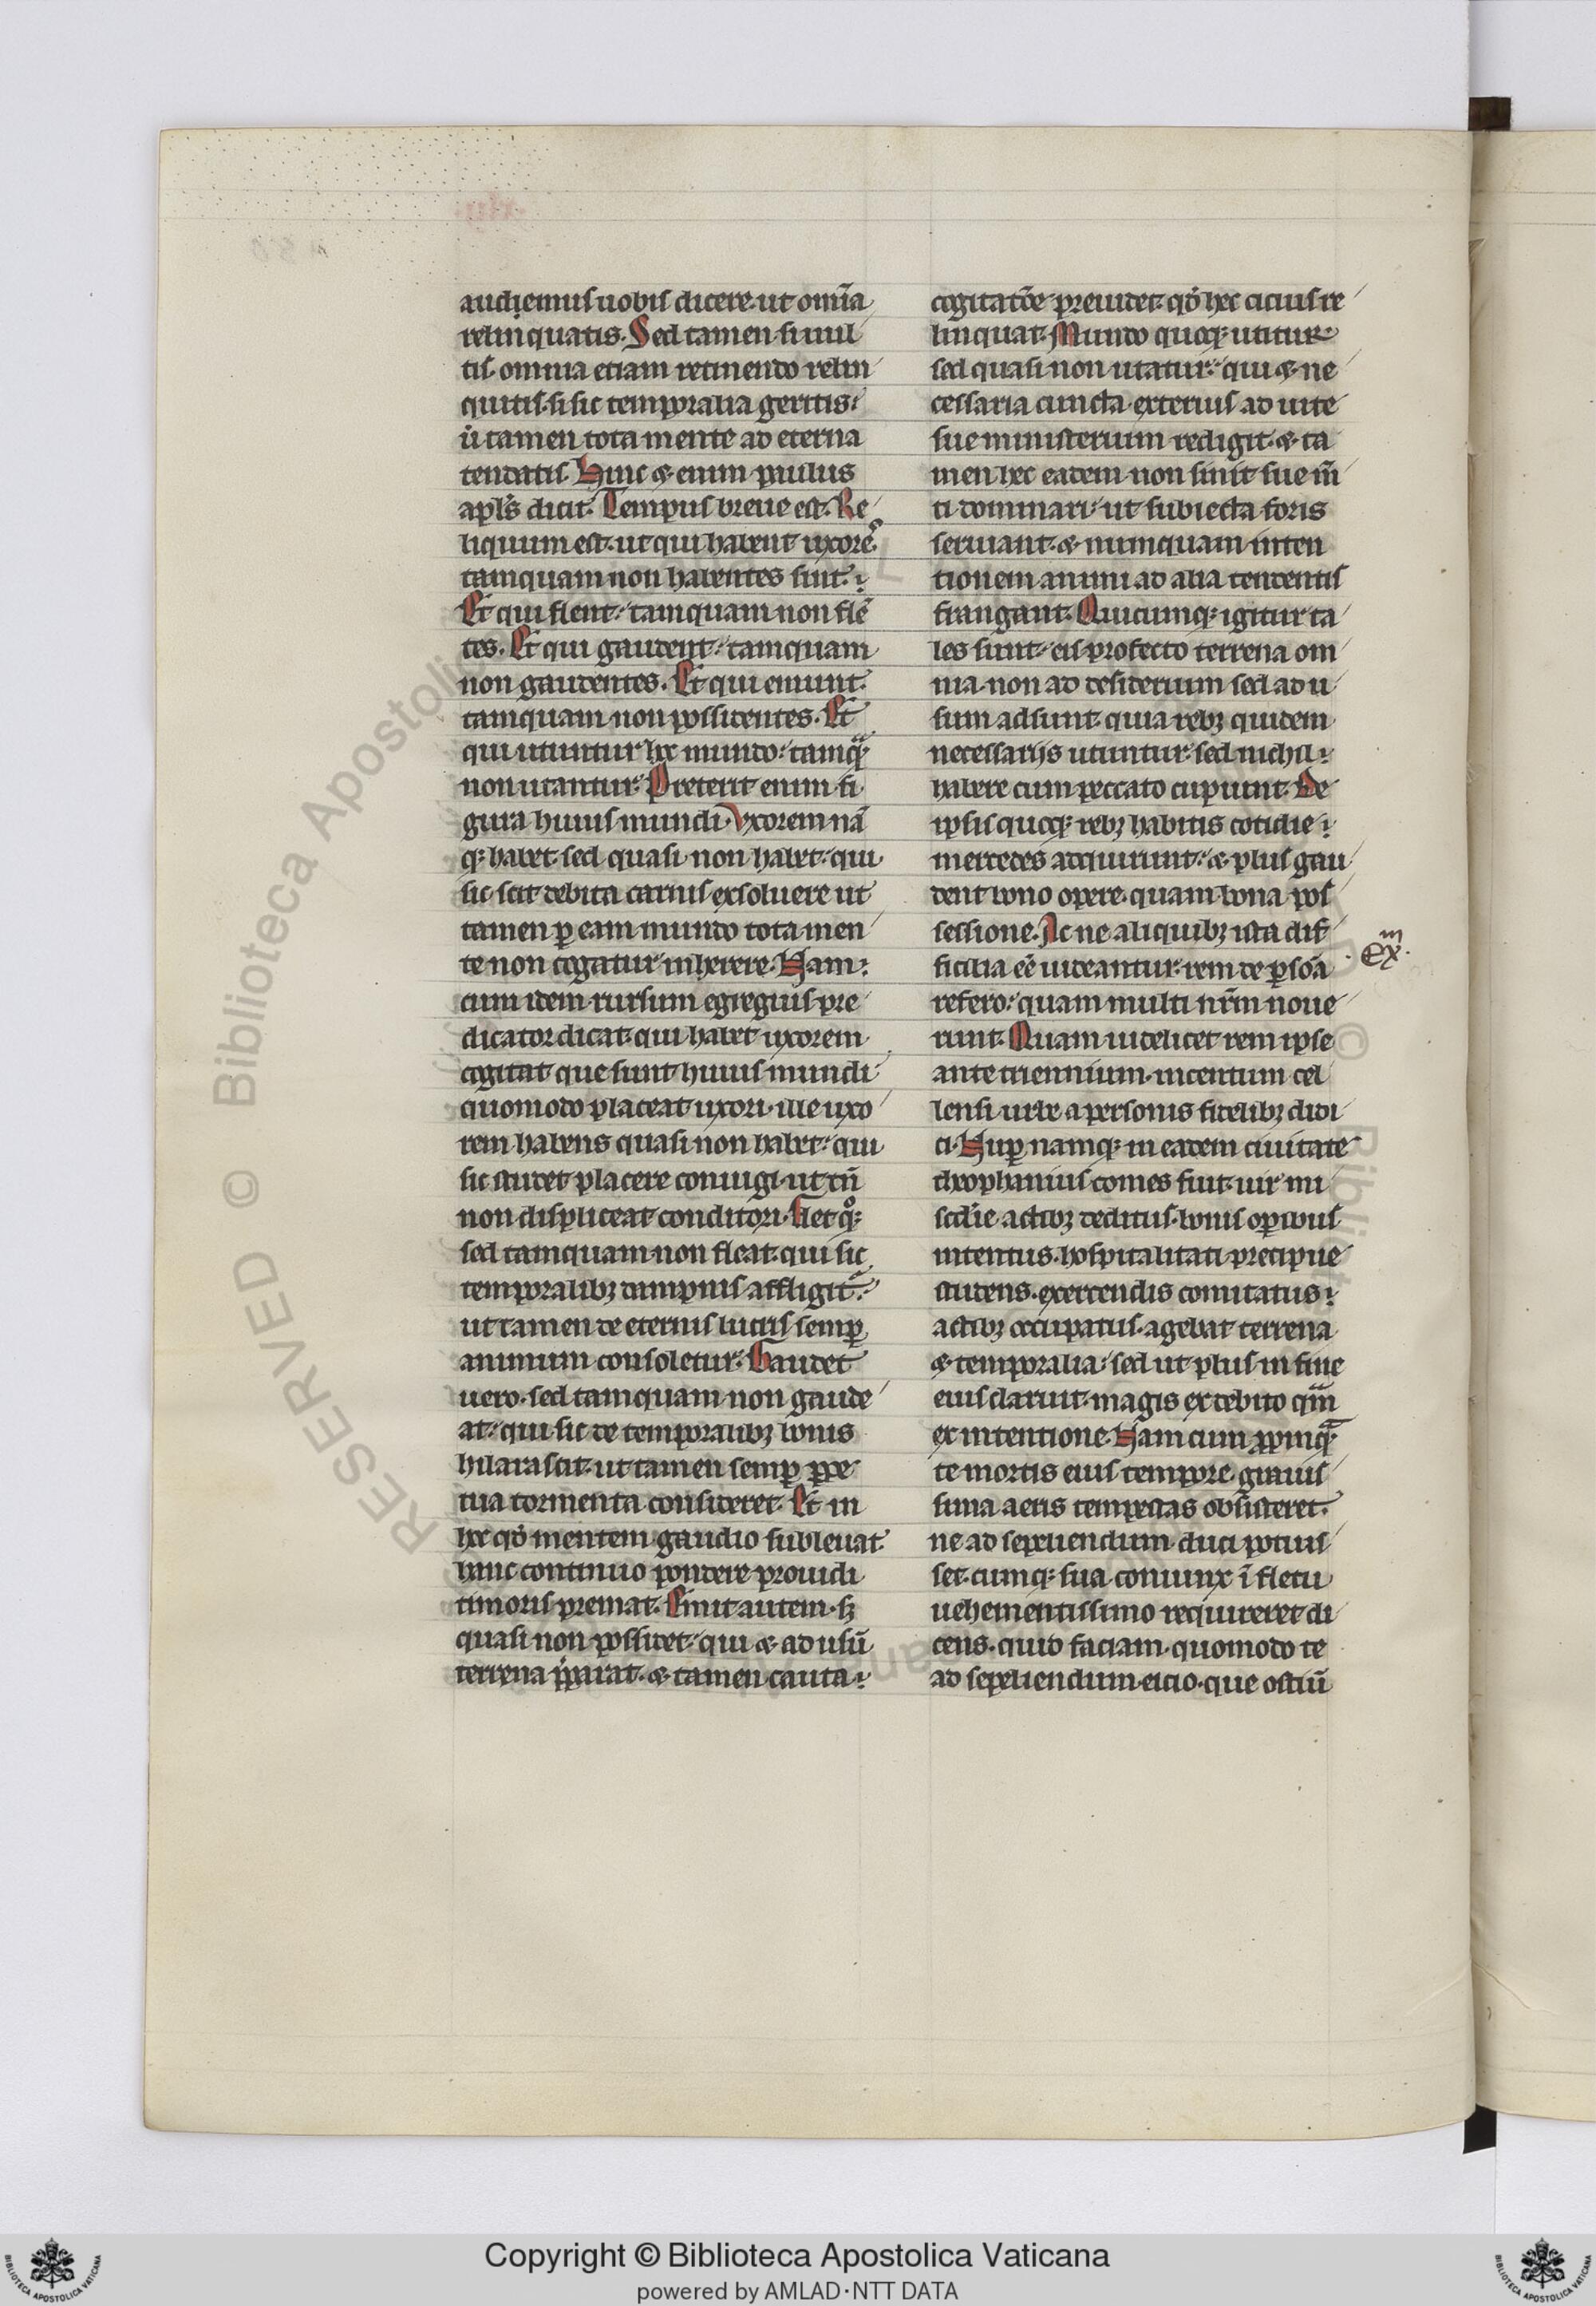 audiemus uobis dicere. ut om̄ia
relinquatis. Sed tamen si uul
tis. omnia etiam retinendo relin
quitis. si sic temporalia geritis:
ut̕ tamen tota mente ad eterna
tendatis. Hinc & enim paulus
apl̄s dicit. Tempus breue est. Re
liquum est. ut qui habent uxorē.
tamquam non habentes sint.
Et qui flent: tamquam non flē
tes. Et qui gaudent: tamquam
non gaudentes. Et qui emunt.
tamquam non possidentes. Et
qui utuntur hoc mundo: tamqᵃ̄
non utantur. Preterit enim fi
gura huius mundi. Vxorem nā
qꝫ habet. sed quasi non habet: qui
sic scit debita carnis exsoluere ut
tamen ꝑ eam mundo tota men
te non cogatur inherere. Nam
cum idem rursum egregius pre
dicator dicat. qui habet uxorem
cogitat que sunt huius mundi
quomodo placeat uxori. ille uxo
rem habens quasi non habet: qui
sic studet placere coniugi. ut tn̄
non displiceat conditori. Flet qͦꝫ
sed tamquam non fleat. qui sic
temporalibꝫ dampnis affligit᷑:
ut tamen de eternis lucris semꝑ
animum consoletur. Gaudet
uero. sed tamquam non gaude
at: qui sic de temporalibꝫ bonis
hilarascit. ut tamen semꝑ ꝑpe
tua tormenta consideret. Et in
hoc qd̕ mentem gaudio subleuat.
hanc continuo pondere prouidi
timoris premat. Emit autem. sꝫ
quasi non possidet: qui & ad usū
terrena p̕parat. & tamen cauta
cogitatōe preuidet. qd̕ hec cicius re
linquat. Mundo quoqꝫ utitur
sed quasi non utatur: qui & ne
cessaria cuncta exterius ad uite
sue ministerium redigit. & ta
men hec eadem non sinit sue m̄
ti dominari: ut subiecta foris
seruiant. & numquam inten
tionem animi ad alta tendentis
frangant. Quicumqꝫ igitur ta
les sunt: eis profecto terrena om
nia. non ad desiderium sed ad u
sum adsunt. quia rebꝫ quidem
necessarijs utuntur: sed nichil
habere cum peccato cupiunt. De
ipsis quoqꝫ rebꝫ habitis cotidie
mercedes adquirunt: & plus gau
dent bono opere. quam bona pos
sessione. Ac ne aliquibꝫ ista dif
ficilia eē uideantur. rem de ꝑsōa
refero: quam multi nr̄m noue
runt. Quam uidelicet rem ipse
ante triennium. in centum cel
lensi urbe a personis fidelibꝫ didi
ci. Nuꝑ namqꝫ in eadem ciuitate
theophanius comes fuit. uir mi
scd̄ie actibꝫ deditus. bonis oꝑibus
intentus. hospitalitati precipue
studens. exercendis comitatus
actibꝫ occupatus. agebat terrena
& temporalia: sed ut plus in fine
eius claruit. magis ex debito qᵃ̄m
ex intentione. Nam cum ꝓpinqᵃ̄
te mortis eius tempore. grauis
sima aeris tempestas obsisteret.
ne ad sepeliendum duci potuis
set. cumqꝫ sua coniunx ī fletu
uehementissimo requireret di
cens. quid faciam. quomodo te
ad sepeliendum eicio. que ostiū
Exᵐ.
Copyright © Biblioteca Apostolica Vaticana
powered by AMLAD·NTT DATA
RESERVED © Biblioteca Apostolica